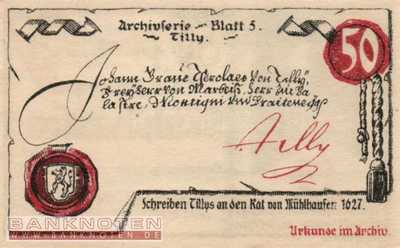 Archivserie - Blatt 5.
Tilly.
50
Johann Graue Tserclaes von Tilly,
Freyherr von Marbeiß, Herr zu Ba
la stre, Montigni und Braitenegkh
Tilly
Schreiben Tillys an den Rat von Mühlhausen 1627.
Urkunde im Archiv.
BANKNOTEN
WWW.BANKNOTEN.DE